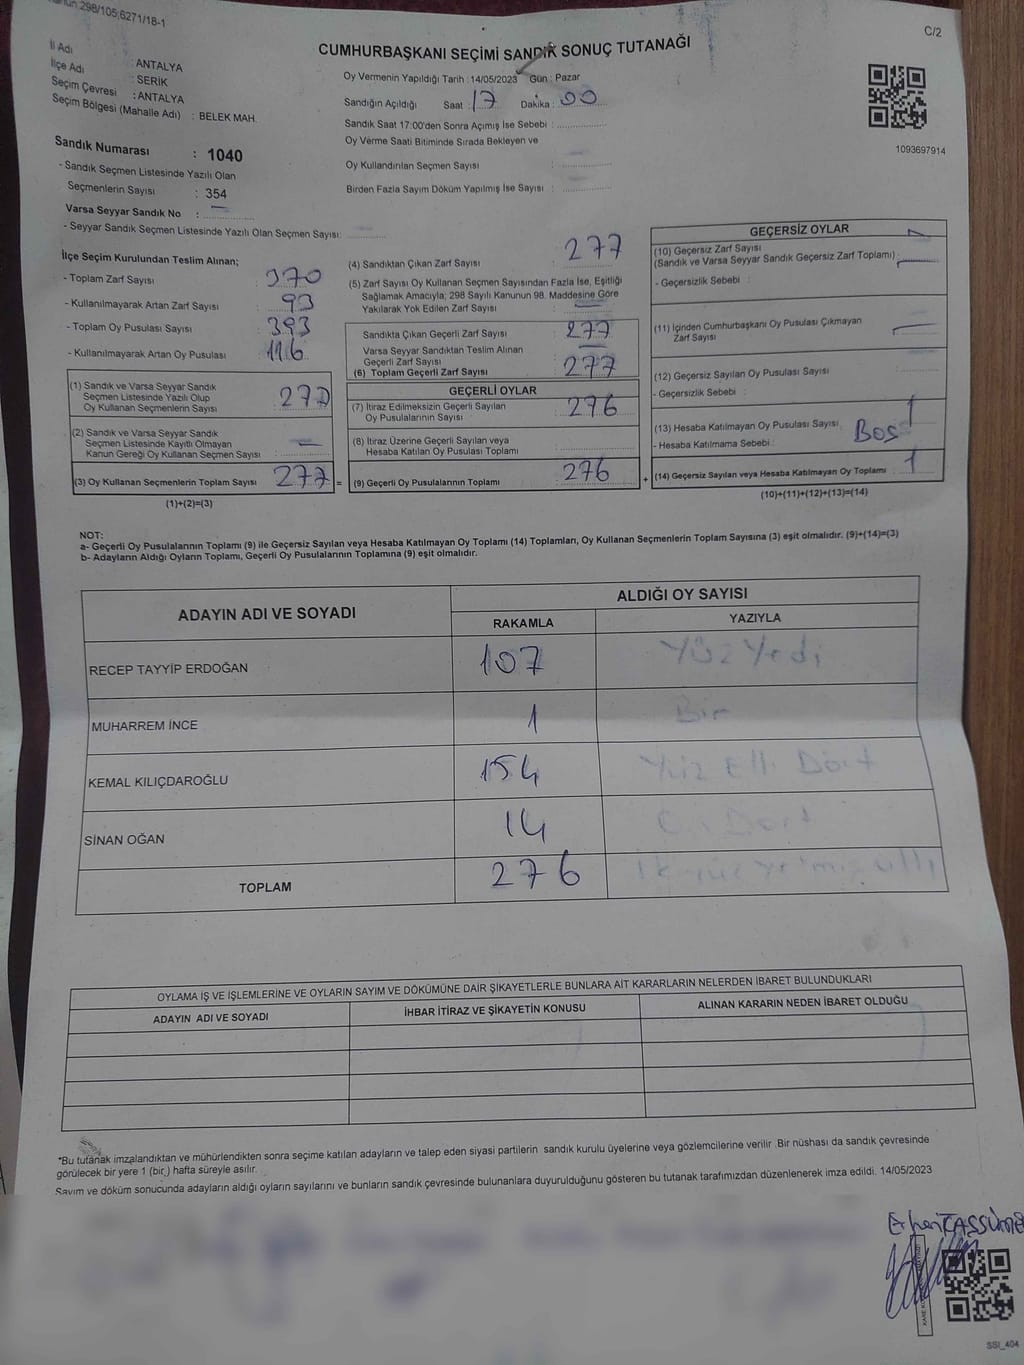 298/105;6271/18-1
C/2
CUMHURBAŞKANI SEÇİMİ SANDIK SONUÇ TUTANAĞI
İl Adı : ANTALYA
İlçe Adı : SERİK
Seçim Çevresi : ANTALYA
Seçim Bölgesi (Mahalle Adı) : BELEK MAH.
Oy Vermenin Yapıldığı Tarih : 14/05/2023 Gün : Pazar
Sandığın Açıldığı Saat : 17 Dakika : 00
Sandık Saat 17:00'den Sonra Açımış İse Sebebi :
Oy Verme Saati Bitiminde Sırada Bekleyen ve
Oy Kullandırılan Seçmen Sayısı :
Birden Fazla Sayım Döküm Yapılmış İse Sayısı :
1093697914
Sandık Numarası : 1040
- Sandık Seçmen Listesinde Yazılı Olan
Seçmenlerin Sayısı : 354
Varsa Seyyar Sandık No :
- Seyyar Sandık Seçmen Listesinde Yazılı Olan Seçmen Sayısı:
İlçe Seçim Kurulundan Teslim Alınan;
- Toplam Zarf Sayısı : 370
- Kullanılmayarak Artan Zarf Sayısı : 93
- Toplam Oy Pusulası Sayısı : 393
- Kullanılmayarak Artan Oy Pusulası : 116
(1) Sandık ve Varsa Seyyar Sandık
Seçmen Listesinde Yazılı Olup
Oy Kullanan Seçmenlerin Sayısı : 277
(2) Sandık ve Varsa Seyyar Sandık
Seçmen Listesinde Kayıtlı Olmayan
Kanun Gereği Oy Kullanan Seçmen Sayısı :
(3) Oy Kullanan Seçmenlerin Toplam Sayısı : 277 =
(1)+(2)=(3)
(4) Sandıktan Çıkan Zarf Sayısı : 277
(5) Zarf Sayısı Oy Kullanan Seçmen Sayısından Fazla İse, Eşitliği
Sağlamak Amacıyla; 298 Sayılı Kanunun 98. Maddesine Göre
Yakılarak Yok Edilen Zarf Sayısı :
Sandıkta Çıkan Geçerli Zarf Sayısı : 277
Varsa Seyyar Sandıktan Teslim Alınan
Geçerli Zarf Sayısı :
(6) Toplam Geçerli Zarf Sayısı : 277
GEÇERLİ OYLAR
(7) İtiraz Edilmeksizin Geçerli Sayılan
Oy Pusulalarının Sayısı : 276
(8) İtiraz Üzerine Geçerli Sayılan veya
Hesaba Katılan Oy Pusulası Toplamı :
(9) Geçerli Oy Pusulalarının Toplamı : 276 +
GEÇERSİZ OYLAR
(10) Geçersiz Zarf Sayısı
(Sandık ve Varsa Seyyar Sandık Geçersiz Zarf Toplamı) :
- Geçersizlik Sebebi :
(11) İçinden Cumhurbaşkanı Oy Pusulası Çıkmayan
Zarf Sayısı :
(12) Geçersiz Sayılan Oy Pusulası Sayısı :
- Geçersizlik Sebebi :
(13) Hesaba Katılmayan Oy Pusulası Sayısı : 1
- Hesaba Katılmama Sebebi : Boş
(14) Geçersiz Sayılan veya Hesaba Katılmayan Oy Toplamı : 1
(10)+(11)+(12)+(13)=(14)
NOT:
a- Geçerli Oy Pusulalarının Toplamı (9) ile Geçersiz Sayılan veya Hesaba Katılmayan Oy Toplamı (14) Toplamları, Oy Kullanan Seçmenlerin Toplam Sayısına (3) eşit olmalıdır. (9)+(14)=(3)
b- Adayların Aldığı Oyların Toplamı, Geçerli Oy Pusulalarının Toplamına (9) eşit olmalıdır.
ADAYIN ADI VE SOYADI ALDIĞI OY SAYISI
RAKAMLA YAZIYLA
RECEP TAYYİP ERDOĞAN 107 Yüz Yedi
MUHARREM İNCE 1 Bir
KEMAL KILIÇDAROĞLU 154 Yüz Elli Dört
SİNAN OĞAN 14 On Dört
TOPLAM 276
OYLAMA İŞ VE İŞLEMLERİNE VE OYLARIN SAYIM VE DÖKÜMÜNE DAİR ŞİKAYETLERLE BUNLARA AİT KARARLARIN NELERDEN İBARET BULUNDUKLARI
ADAYIN ADI VE SOYADI İHBAR İTİRAZ VE ŞİKAYETİN KONUSU ALINAN KARARIN NEDEN İBARET OLDUĞU
*Bu tutanak imzalandıktan ve mühürlendikten sonra seçime katılan adayların ve talep eden siyasi partilerin sandık kurulu üyelerine veya gözlemcilerine verilir .Bir nüshası da sandık çevresinde
görülecek bir yere 1 (bir,) hafta süreyle asılır.
Sayım ve döküm sonucunda adayların aldığı oyların sayılarını ve bunların sandık çevresinde bulunanlara duyurulduğunu gösteren bu tutanak tarafımızdan düzenlenerek imza edildi. 14/05/2023
SSI_404